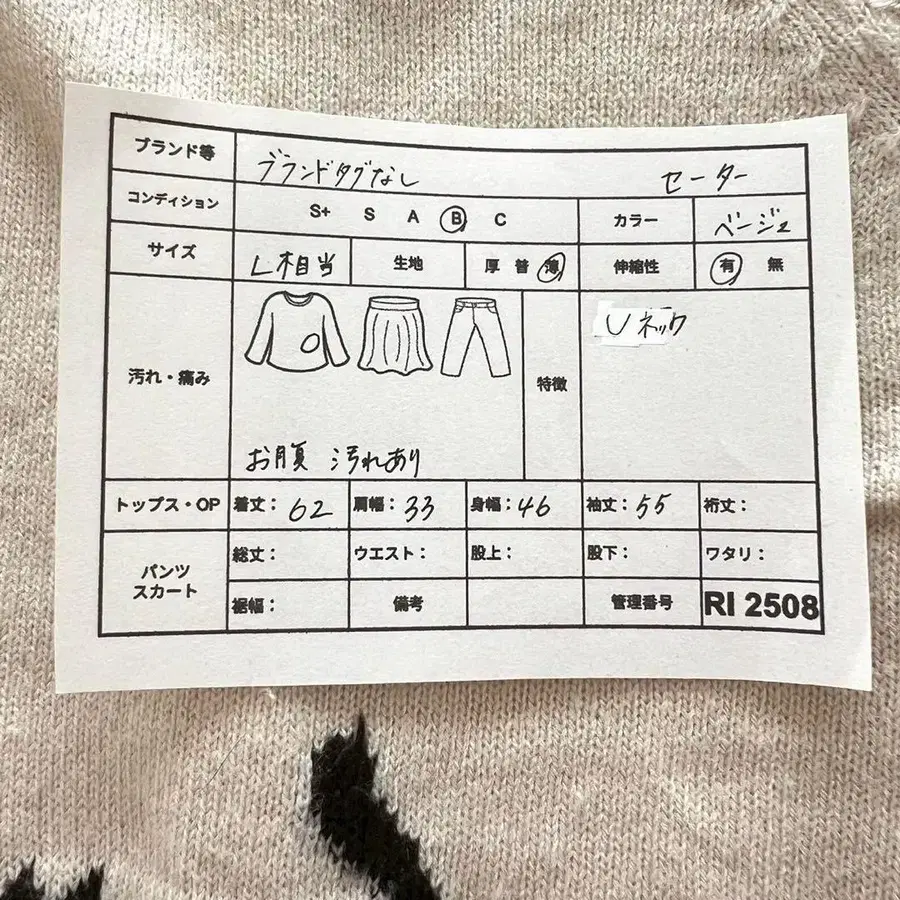 ブランド等 ブランドタグなし セーター
コンディション S+ S A B C カラー ベージュ
サイズ L相当 生地 厚 普 薄 伸縮性 有 無
汚れ・痛み お腹 汚れあり 特徴 Uネック
トップス・OP 着丈: 62 肩幅: 33 身幅: 46 袖丈: 55 裄丈:
パンツ スカート 総丈: ウエスト: 股上: 股下: ワタリ:
裾幅: 備考 管理番号 RI 2508